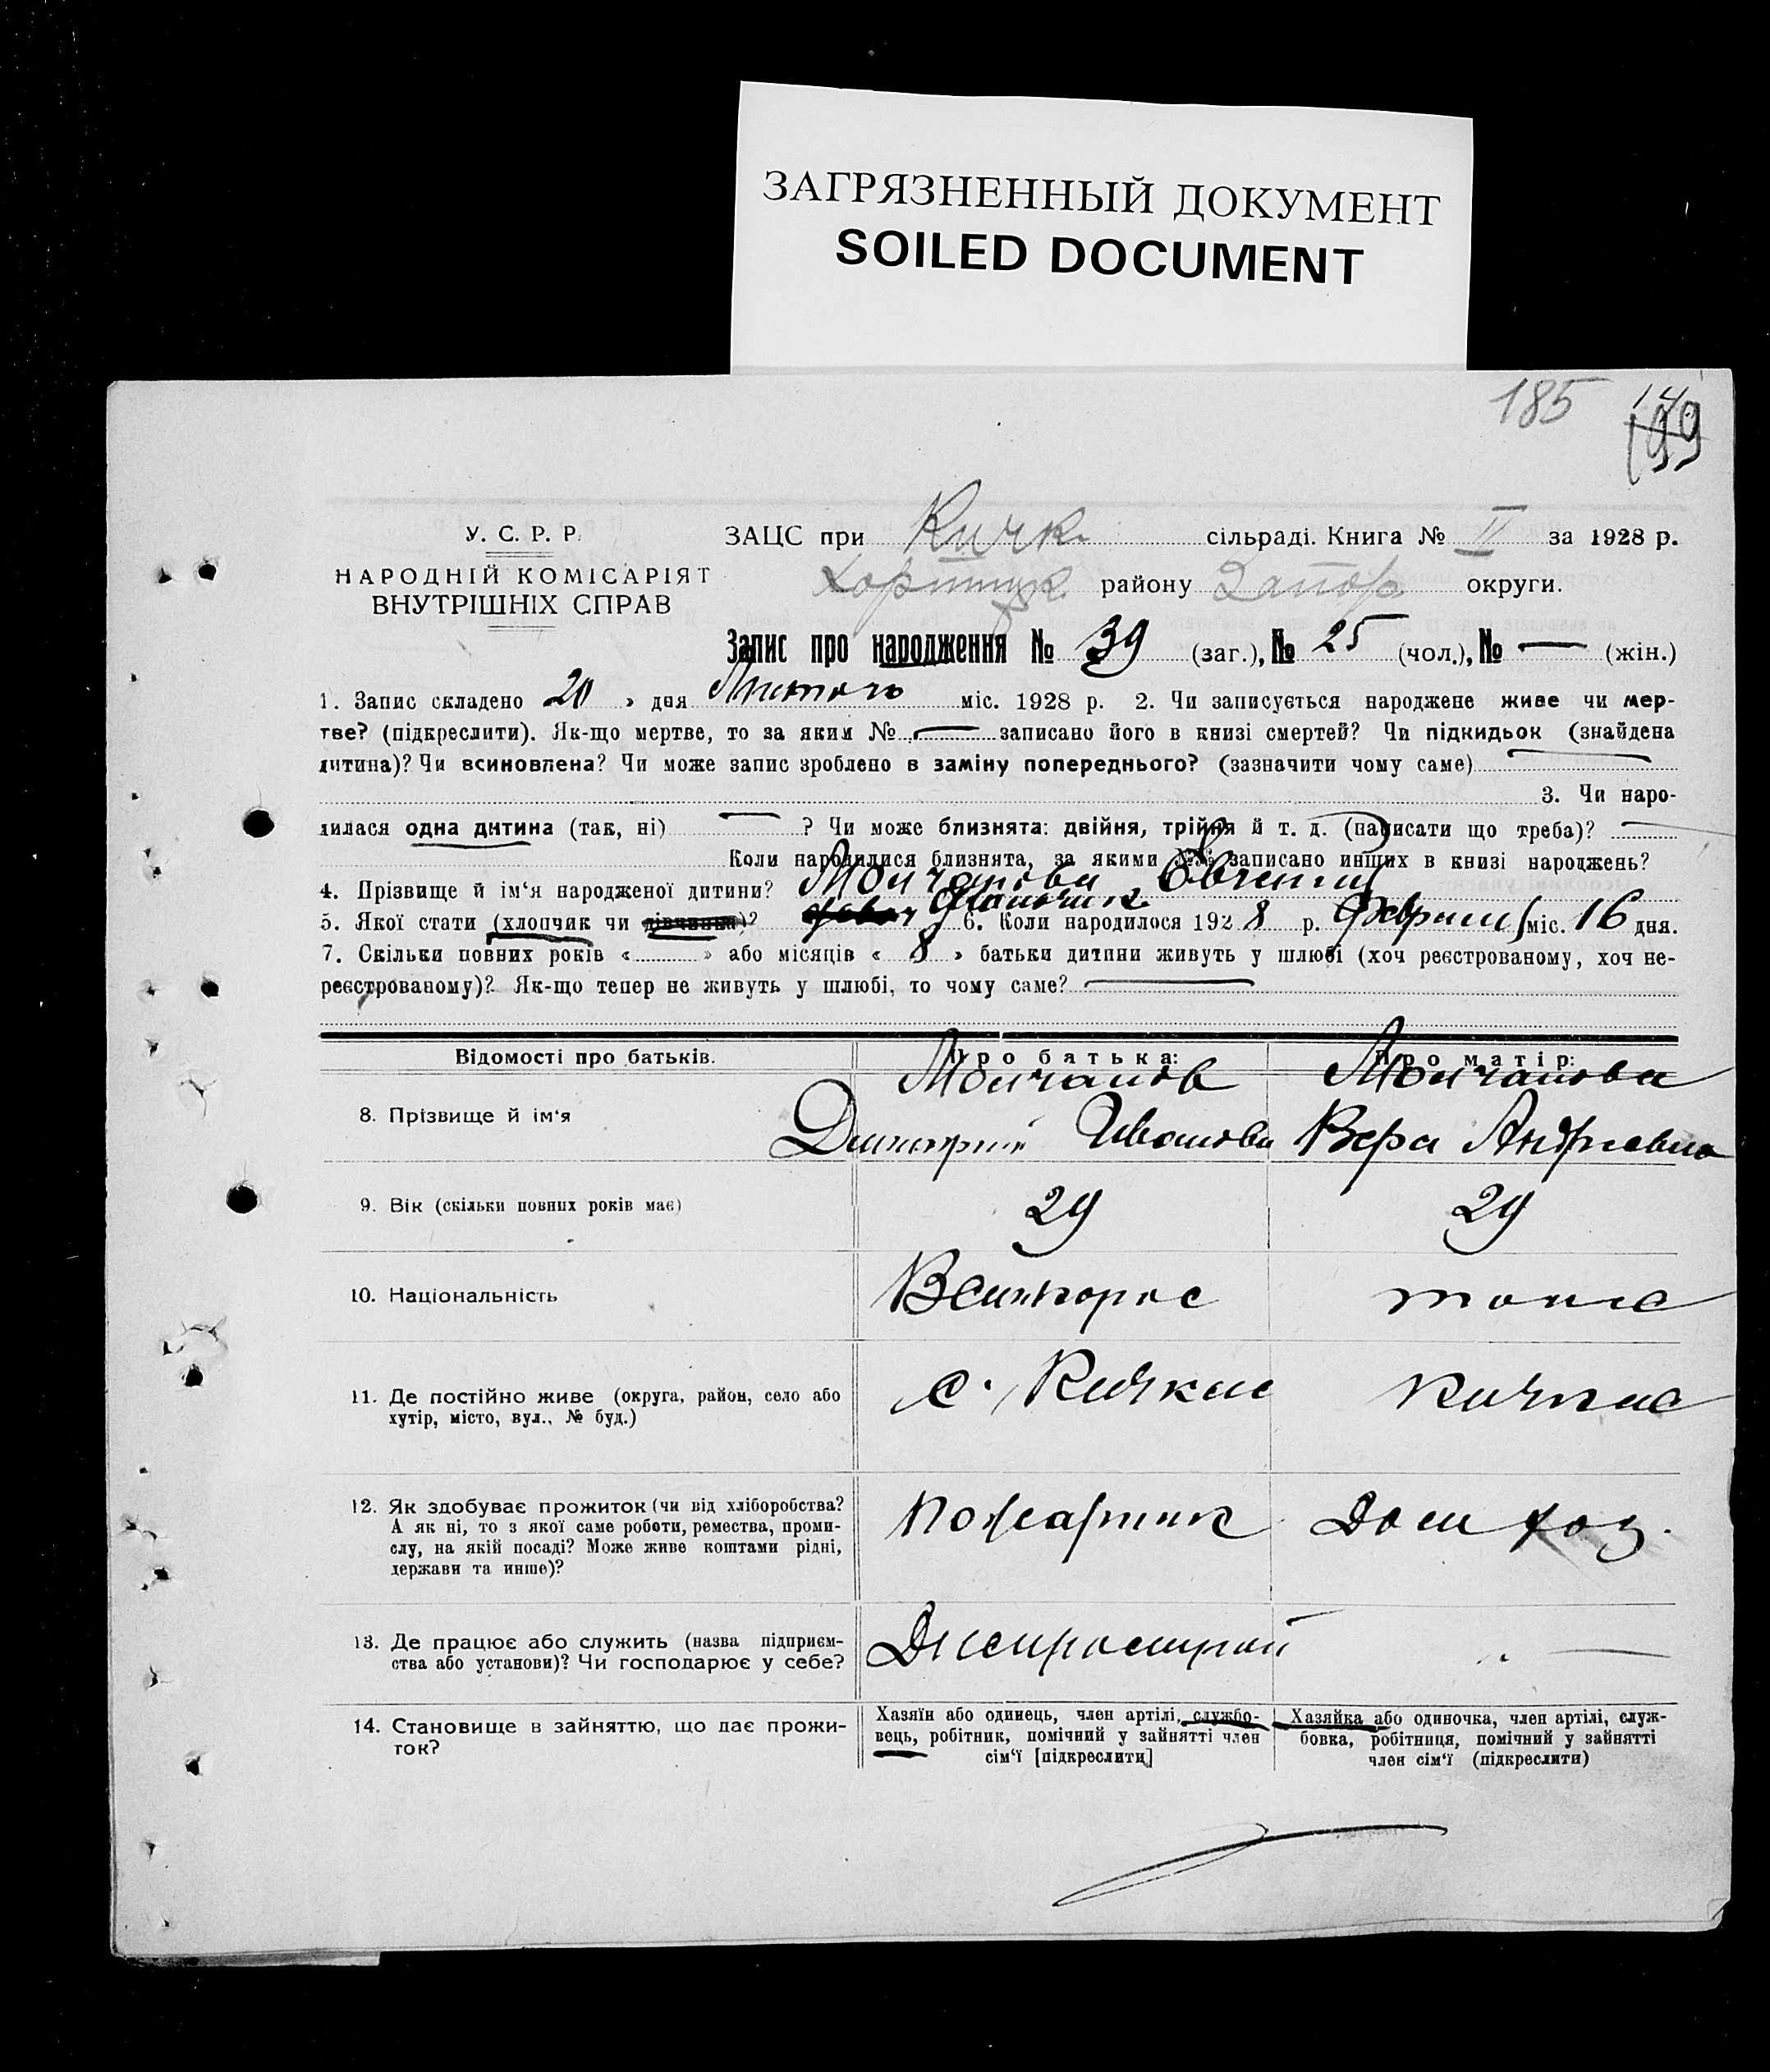 ЗАГРЯЗНЕННЫЙ ДОКУМЕНТ
SOILED DOCUMENT
185 14
199
У. С. Р. Р.
НАРОДНІЙ КОМІСАРІЯТ
ВНУТРІШНІХ СПРАВ
ЗАЦС при Кичк. сільраді. Книга № II за 1928 р.
Хортицк району Запор округи.
Запис про народження № 39 (заг.), № 25 (чол.), № — (жін.)
1. Запис складено 20 » дня міс. 1928 р. 2. Чи записується народжене живе чи мер-
тве? (підкреслити). Як-що мертве, то за яким № — записано його в книзі смертей? Чи підкидьок (знайдена
дитина)? Чи всиновлена? Чи може запис зроблено в заміну попереднього? (зазначити чому саме) —
3. Чи наро-
дилася одна дитина (так, ні) — ? Чи може близнята: двійня, трійня й т. д. (написати що треба)? —
Коли народилися близнята, за якими №№ записано инших в книзі народжень?
4. Прізвище й ім‘я народженої дитини? Молчанова Евгений
5. Якої стати (хлопчик чи дівчинка)? 6. Коли народилося 1928 р. Февраля міс. 16 дня.
7. Скільки повних років « » або місяців « 8 » батьки дитини живуть у шлюбі (хоч реєстрованому, хоч не-
реєстрованому)? Як-що тепер не живуть у шлюбі, то чому саме? —
Відомості про батьків. Про батька: Про матір:
8. Прізвище й ім‘я Молчанов Дмитрий Иванови Молчанова Вера Андреевна
9. Вік (скільки повних років має) 29 29
10. Національність Великорос тоже
11. Де постійно живе (округа, район, село або
хутір, місто, вул., № буд.) с. Кичкас Кичкас
12. Як здобуває прожиток (чи від хліборобства?
А як ні, то з якої саме роботи, ремества, проми-
слу, на якій посаді? Може живе коштами рідні,
держави та инше)? Пожарник Дом хоз.
13. Де працює або служить (назва підприєм-
ства або установи)? Чи господарює у себе? Днепрострой " —
14. Становище в зайняттю, що дає прожи-
ток?
Хазяїн або одинець, член артілі, службо-
вець, робітник, помічний у зайнятті член
сім‘ї [підкреслити]
Хазяйка або одиночка, член артілі, служ-
бовка, робітниця, помічний у зайнятті
член сім‘ї (підкреслити)